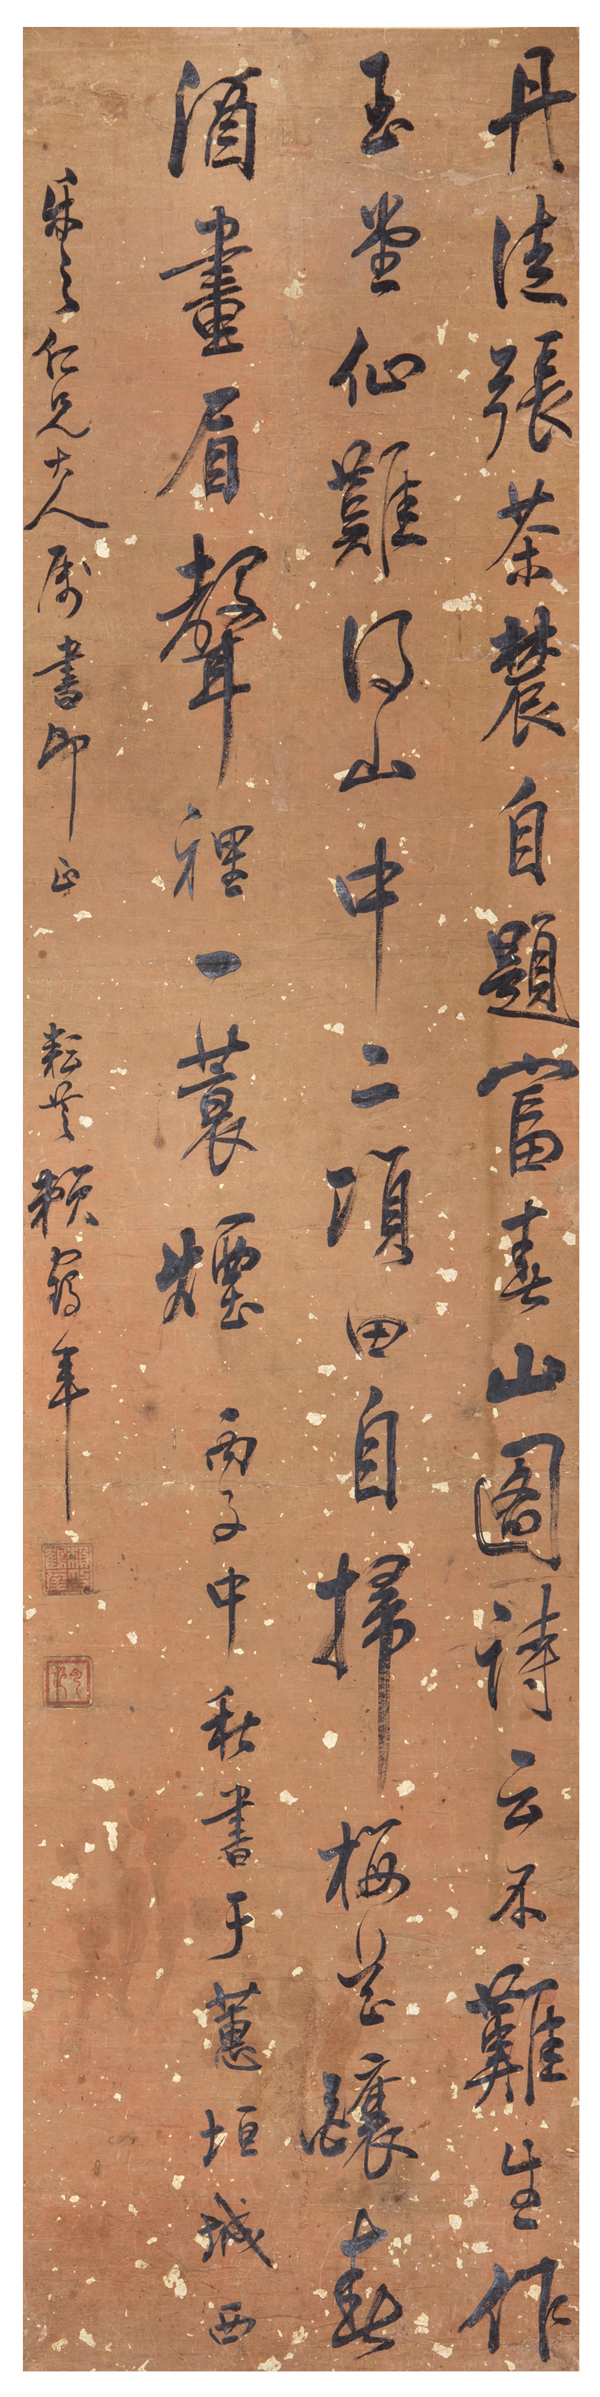 丹徒張茶農自題富春山圖詩云不難生作
玉堂仙難得山中二頃田自掃梅花釀春
酒畫眉聲裡一蓑煙 丙子中秋書于蕙垣城西
樂之仁兄大人屬書即正 耘芝賴鶴年